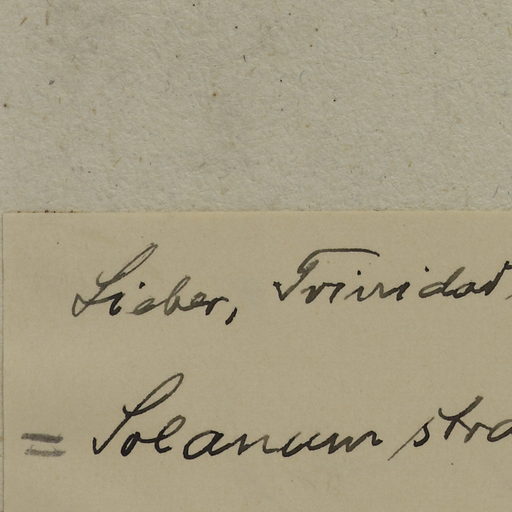 Sieber, Trinidad
= Solanum stra